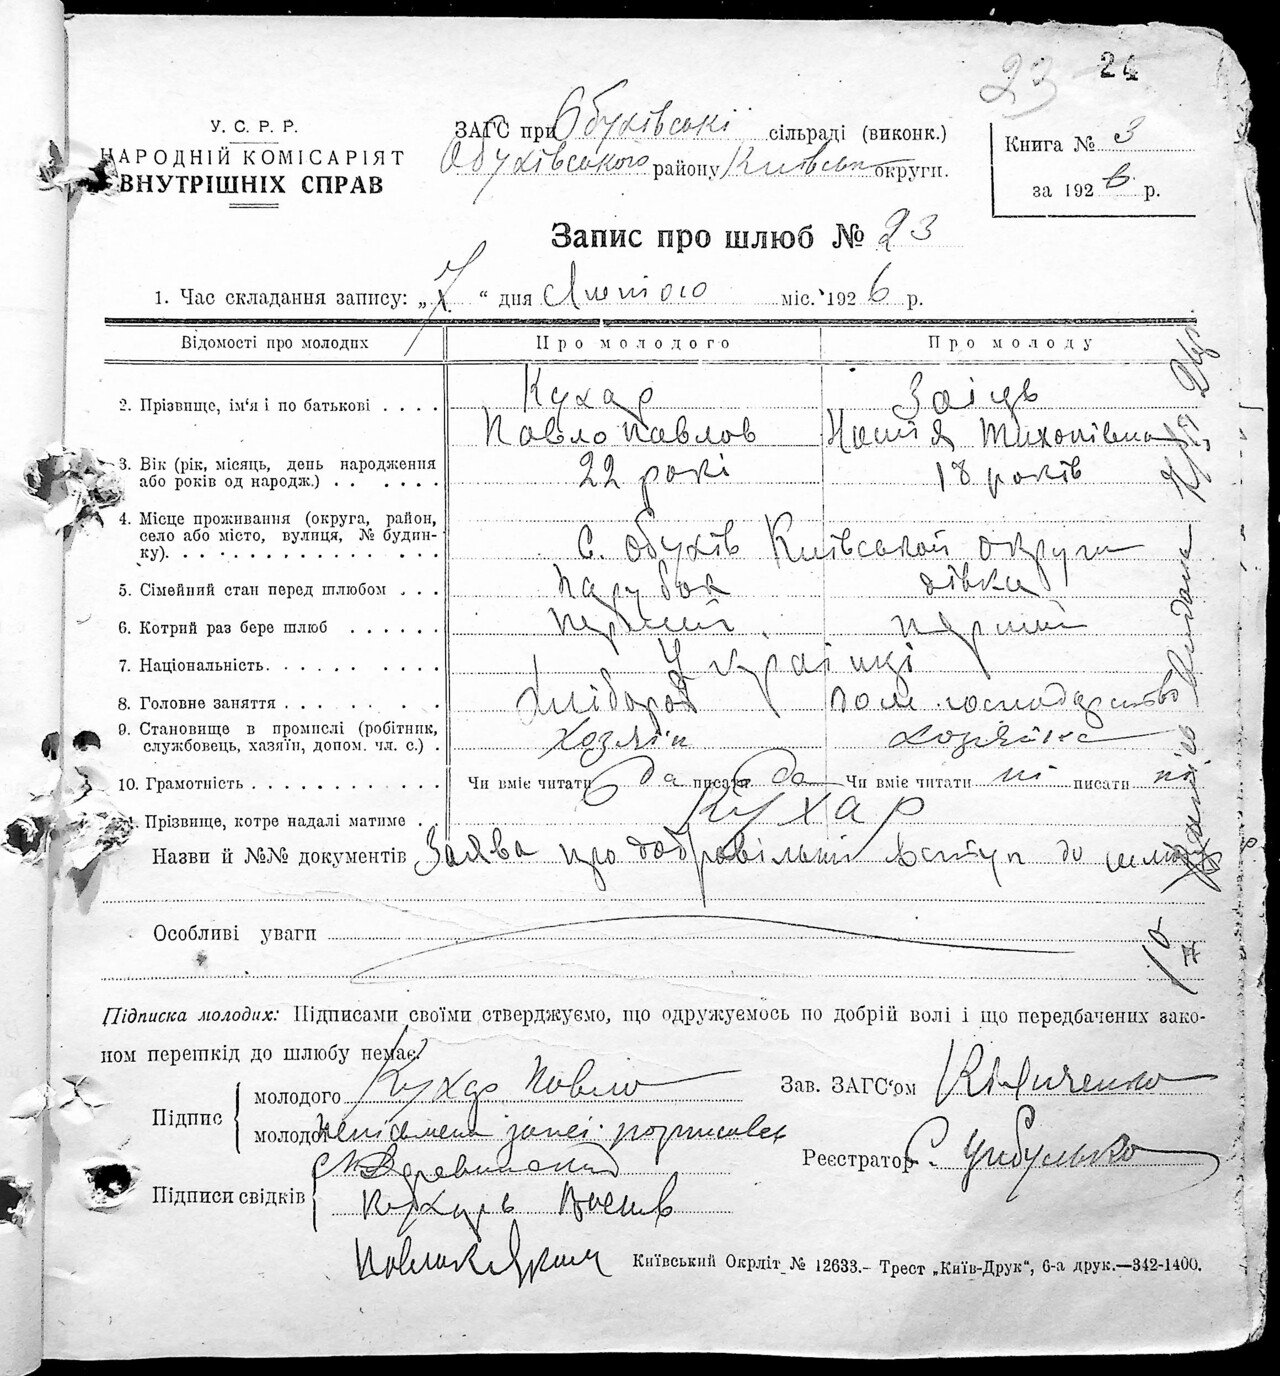 23 24
У. С. Р. Р.
НАРОДНІЙ КОМІСАРІЯТ
ВНУТРІШНІХ СПРАВ
ЗАГС при Обухівські сільраді (виконк.)
Обухівського району Київськ округи.
Книга № 3
за 1926 р.
Запис про шлюб № 23
1. Час складання запису: „7“ дня Лютого міс. 1926 р.
Відомості про молодих Про молодого Про молоду
2. Прізвище, ім'я і по батькові . . . . Кухар Заіць
Павло Павлов Настія Тихонівна
3. Вік (рік, місяць, день народження 22 рокі 18 років
або років од народж.) . . . . . .
4. Місце проживання (округа, район,
село або місто, вулиця, № будин-
ку). . . . . . . . . . . . . . . с. Обухів Київськой округи
5. Сімейний стан перед шлюбом . . . Парубок дівка
6. Котрий раз бере шлюб . . . . . . перший перший
7. Національність. . . . . . . . . . . Українці
8. Головне заняття . . . . . . . . . . Хлібороб дом. господарство
9. Становище в промислі (робітник, Хозяїн хозяйка
службовець, хазяїн, допом. чл. с.) .
10. Грамотність . . . . . . . . . . . . Чи вміє читати да писати да Чи вміє читати ні писати ні
Прізвище, котре надалі матиме . Кухар
Назви й №№ документів Заява про добровільний вступ до шлюбу
Особливі уваги
Підписка молодих: Підписами своїми стверджуємо, що одружуємось по добрій волі і що передбачених зако-
ном перешкід до шлюбу немає.
Підпис молодого Кухар Павло Зав. ЗАГС'ом Кириченко
молодої неписьмена розписавсь
Реєстратор С. Цибулько
Підписи свідків
Кухарь Восип
Київський Окрліт № 12633.– Трест „Київ-Друк“, 6-а друк.—342-1400.